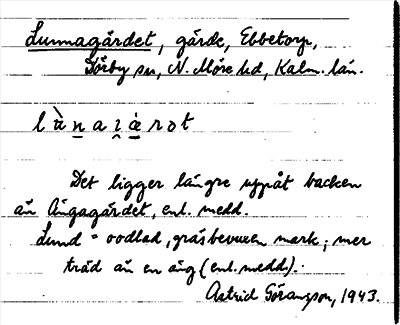 Lunnagärdet, gärde, Ebbetorp,
Dörby sn, N. Möre hd, Kalm. län.
Det ligger längre uppåt backen
än Ängagärdet, enl. medd.
Lund = oodlad, gräsbevuxen mark; mer
träd än en äng (enl. medd).
Astrid Göransson, 1943.